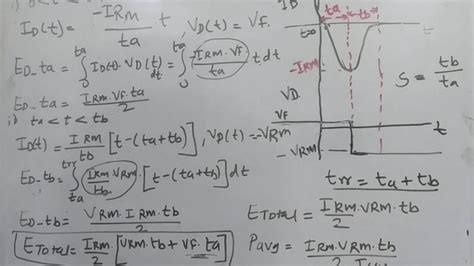 I_D(t) = -I_Rm/ta t, V_D(t) = V_F.
E_D_ta = ∫_0^ta I_D(t) V_D(t) dt = ∫_0^ta -I_Rm V_F/ta t dt
E_D_ta = I_Rm. V_F. ta/2
ta < t < tb
I_D(t) = I_Rm/tb [t-(ta+tb)], V_D(t) = -V_Rm
E_D_tb = ∫_ta^trr I_Rm V_Rm/tb . [t-(ta+tb)] dt
E_D-tb = V_Rm. I_Rm. tb/2
E_Total = I_Rm/2 [V_Rm.tb + V_F. ta]
I_D
ta
tb
t=0
-I_Rm
S = tb/ta
V_D
V_F
t
-V_Rm
trr = ta + tb
E_Total = I_Rm. V_Rm. tb/2
Pavg = I_Rm. V_Rm. tb